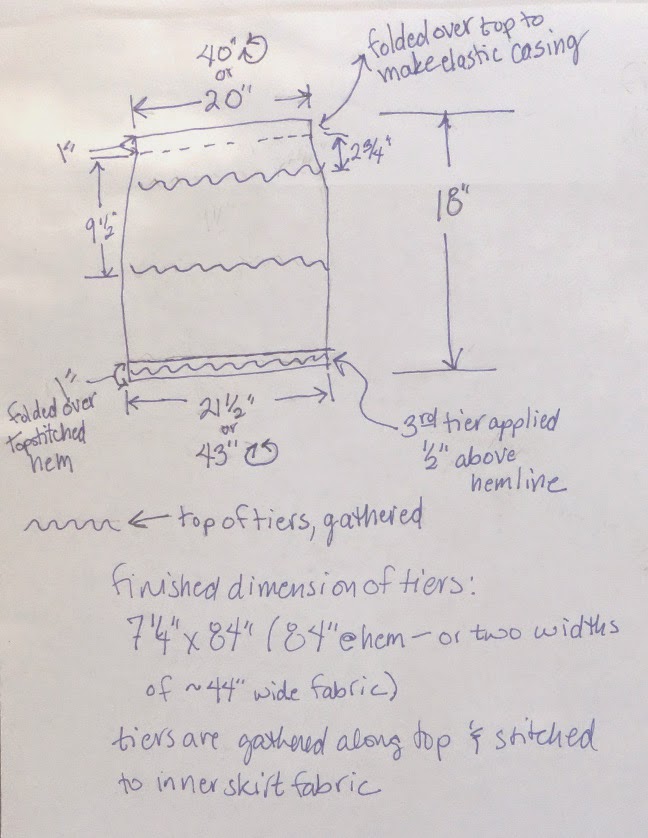 40"
or
20"
folded over top to
make elastic casing
1"
2 3/4"
9 1/2"
18"
1"
folded over
topstitched
hem
21 1/2"
or
43"
3rd tier applied
1/2" above
hemline
← top of tiers, gathered
finished dimension of tiers:
7 1/4" x 84" (84" @ hem — or two widths
of ~44" wide fabric)
tiers are gathered along top & stitched
to inner skirt fabric